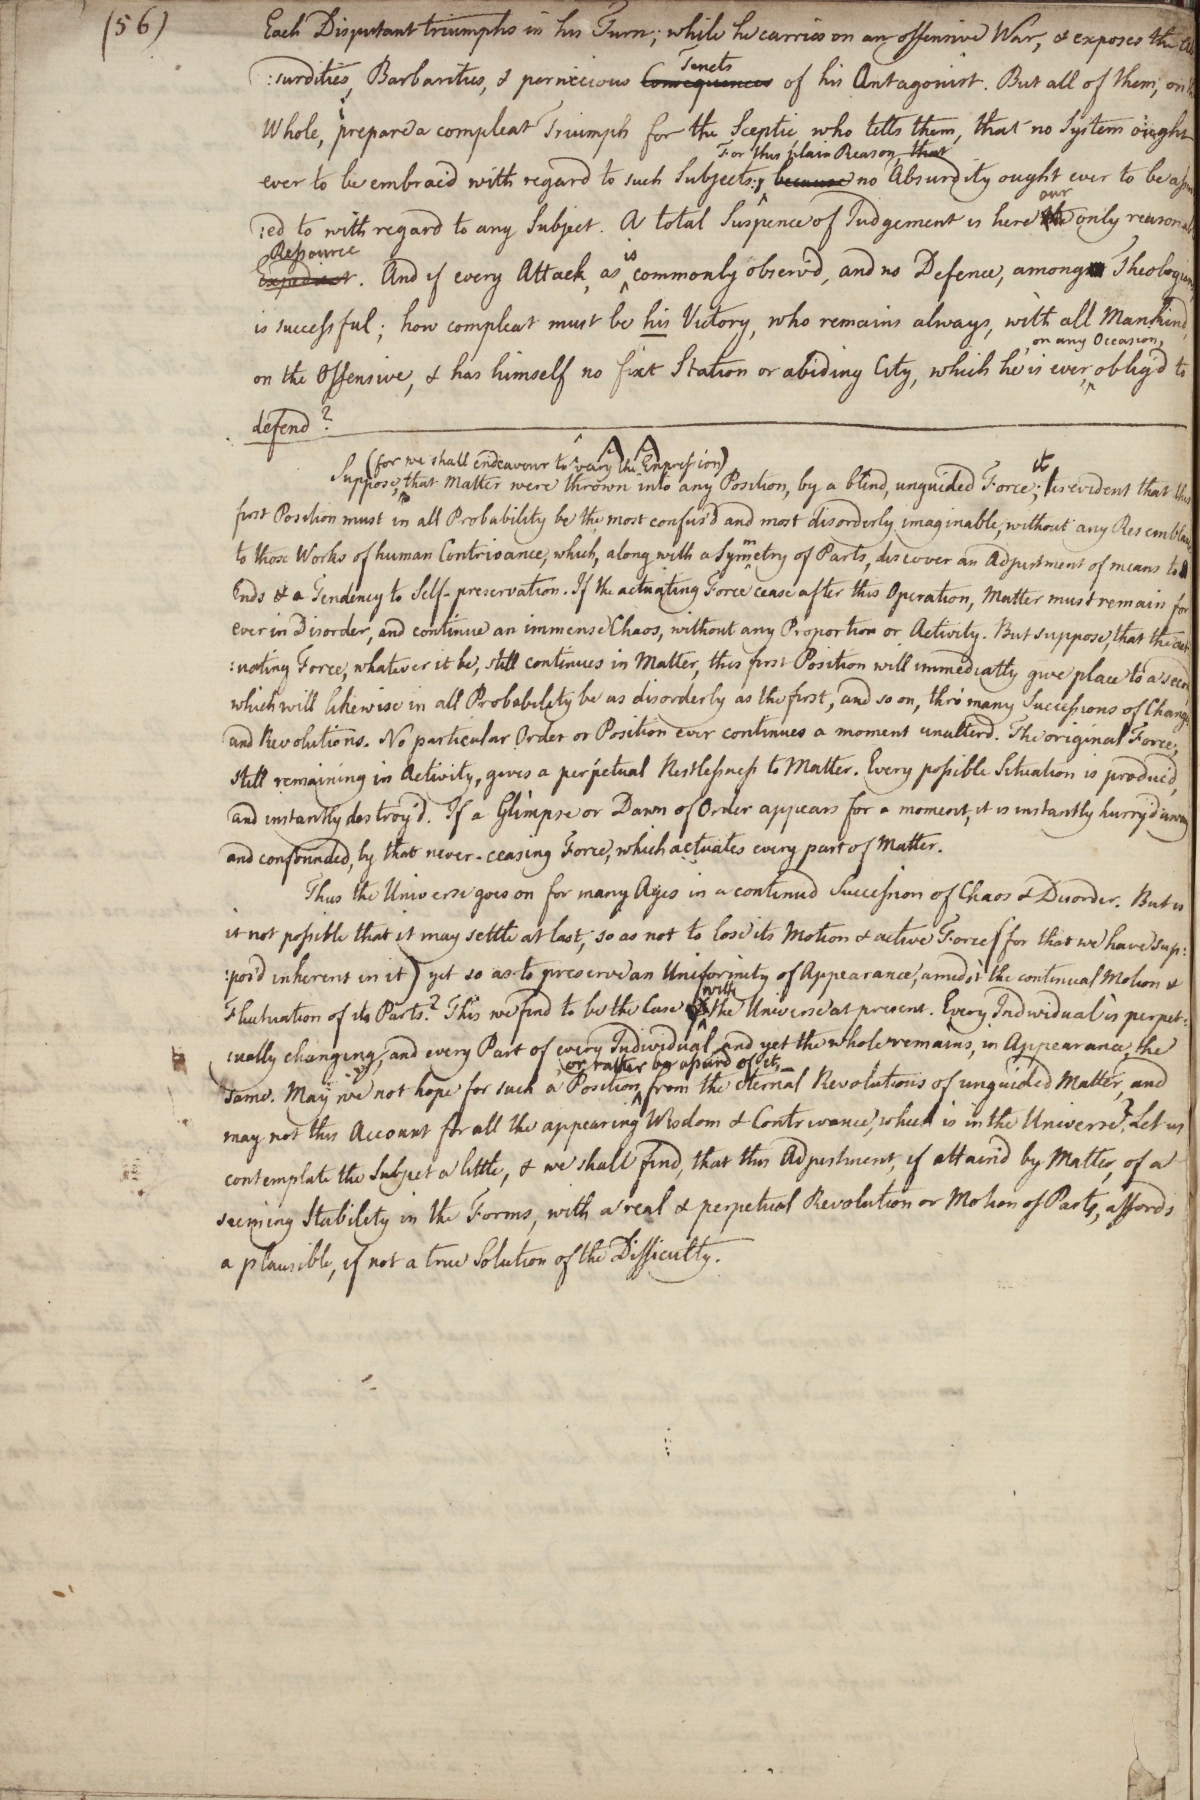 (56)
Each Disputant triumphs in his Turn; while he carries on an offensive War, & exposes the Ab
:surdities, Barbarities, & pernicious Consequences Tenets of his Antagonist. But all of them, on the
Whole, prepare a compleat Triumph for the Sceptic who tells them, that no System ought
ever to be embrac'd with regard to such Subjects: For this plain Reason, that because no Absurdity ought ever to be assen
:ed to with regard to any Subject. A total Suspence of Judgement is here the our only reasonable
Expedient Ressource. And if every Attack, as is commonly observ'd, and no Defence, among Theologians,
is successful; how compleat must be his Victory, who remains always, with all Mankind,
on the Offensive, & has himself no fixt Station or abiding City, which he is ever, on any Occasion, oblig'd to
defend?
AA
Suppose, (for we shall endeavour to vary the Expression) that Matter were thrown into any Position, by a blind, unguided Force; it is evident that this
first Position must in all Probability be the most confus'd and most disorderly imaginable, without any Resemblance
to those Works of human Contrivance, which, along with a Symmetry of Parts, discover an Adjustment of means to
Ends & a Tendency to Self-preservation. If the actuating Force cease after this Operation, Matter must remain for
ever in Disorder, and continue an immense Chaos, without any Proportion or Activity. But suppose, that the act
:uating Force, whatever it be, still continues in Matter, this first Position will immediatly give place to a second
which will likewise in all Probability be as disorderly as the first, and so on, thro' many Successions of Changes
and Revolutions. No particular Order or Position ever continues a moment unalterd. The original Force,
still remaining in Activity, gives a perpetual Restlessness to Matter. Every possible Situation is produc'd,
and instantly destroy'd. If a Glimpse or Dawn of Order appears for a moment, it is instantly hurry'd away
and confounded, by that never-ceasing Force, which actuates every part of Matter.
Thus the Universe goes on for many Ages in a continud Succession of Chaos & Disorder. But is
it not possible that it may settle at last, so as not to lose its Motion & active Force (for that we have sup:
:pos'd inherent in it) yet so as to preserve an Uniformity of Appearance, amidst the continual Motion &
Fluctuation of its Parts? This we find to be the Case with the Universe at present. Every Individual is perpet:
:ually changing, and every Part of every Individual, and yet the whole remains, in Appearance, the
same. May we not hope for such a Position, or rather be assurd of it, from the eternal Revolutions of unguided Matter, and
may not this Account for all the appearing Wisdom & Contrivance, which is in the Universe? Let us
contemplate the Subject a little, & we shall find, that this Adjustment, if attain'd by Matter, of a
seeming Stability in the Forms, with a real & perpetual Revolution or Motion of Parts, affords
a plausible, if not a true Solution of the Difficulty.